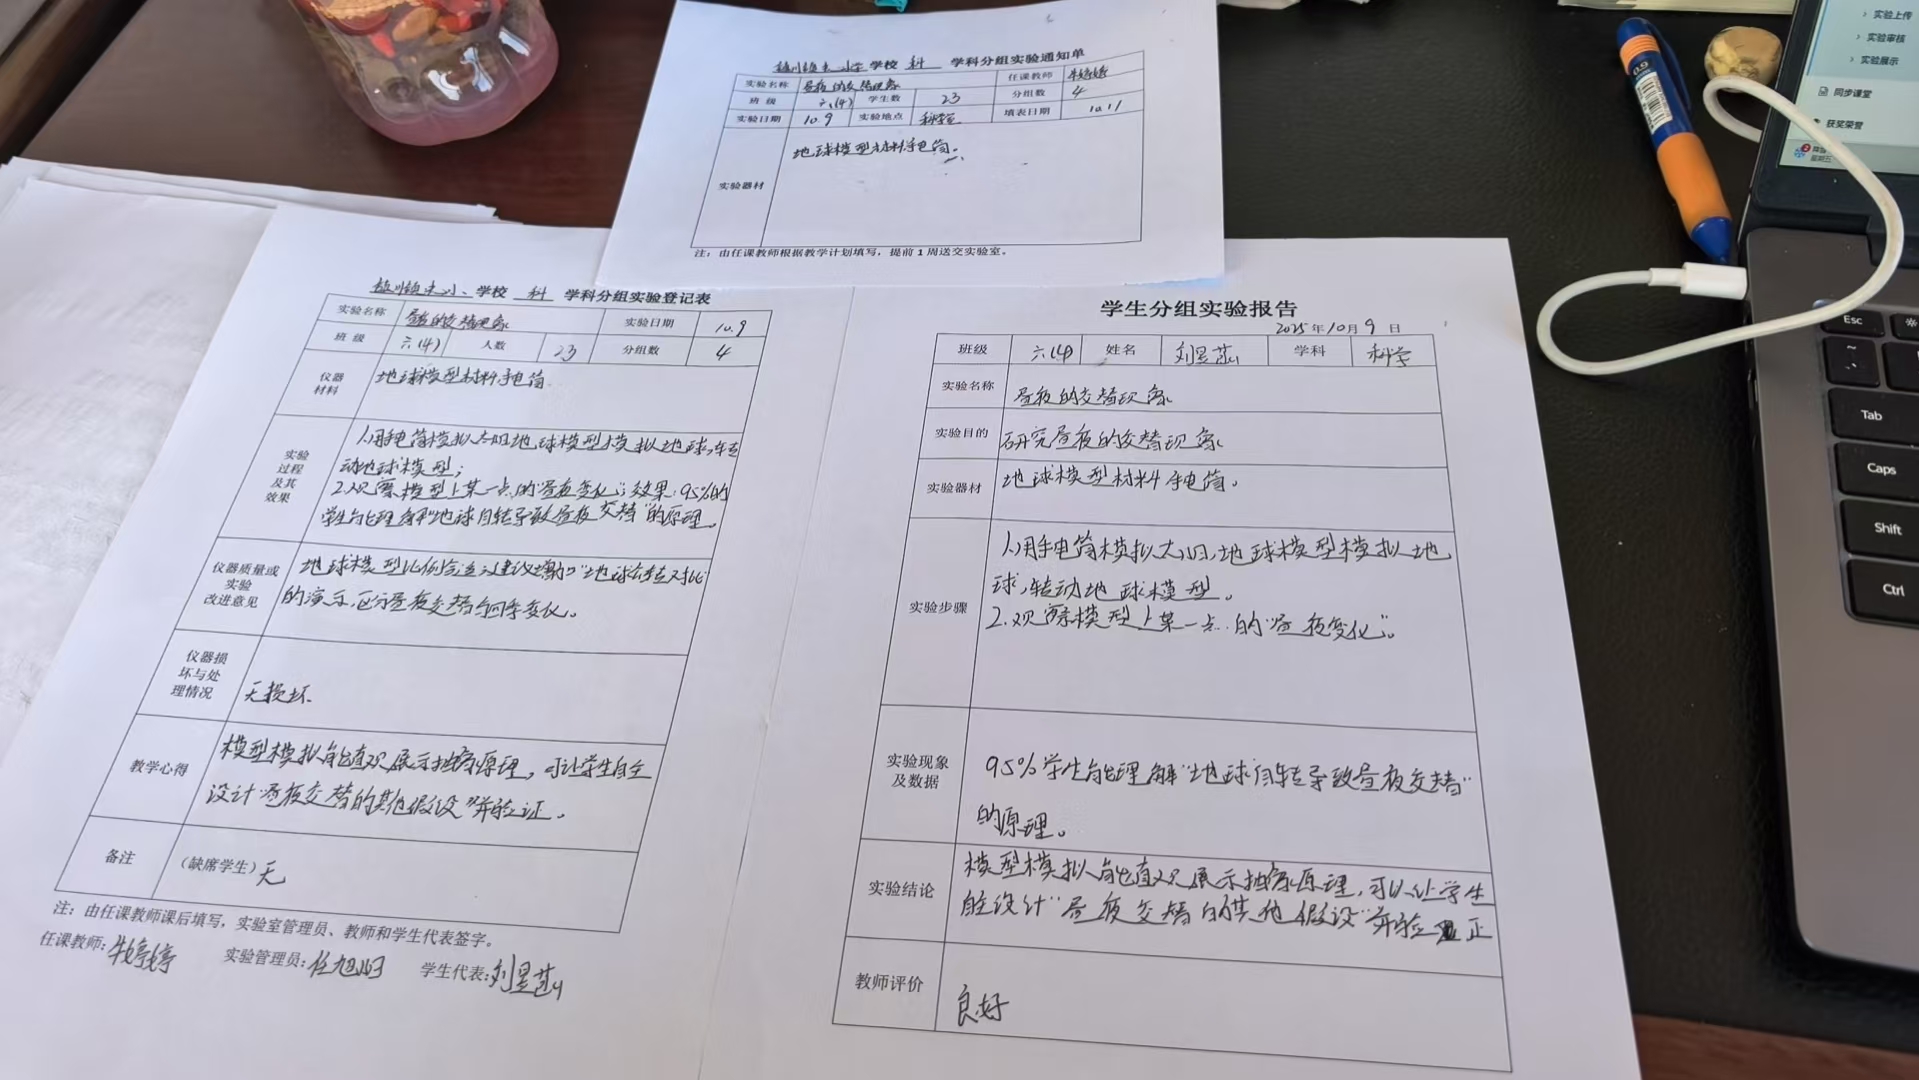 学校 科 学科分组实验通知单
实验名称 昼夜的交替现象 任课教师 牛婷婷
班 级 六(4) 学生数 23 分组数 4
实验日期 10.9 实验地点 科学室 填表日期 10.11
实验器材 地球模型材料手电筒。
注：由任课教师根据教学计划填写，提前 1 周送交实验室。
学校 科 学科分组实验登记表
实验名称 昼夜的交替现象 实验日期 10.9
班 级 六(4) 人数 23 分组数 4
仪器
材料
地球模型材料手电筒
实验
过程
及其
效果
1.用手电筒模拟太阳地球模型模拟地球,转
动地球模型;
2.观察模型上某一点的"昼夜变化";效果:95%的
学生能理解"地球自转导致昼夜交替"的原理。
仪器质量或
实验
改进意见
地球模型比例合适,建议增加"地球公转对比"
的演示,区分昼夜交替与四季变化。
仪器损
坏与处
理情况
无损坏
教学心得
模型模拟能直观展示抽象原理，可让学生自主
设计"昼夜交替的其他假设"并验证。
备注 (缺席学生) 无
注：由任课教师课后填写，实验室管理员、教师和学生代表签字。
任课教师: 牛婷婷 实验管理员: 任旭 学生代表: 刘昱
学生分组实验报告
2025 年 10 月 9 日
班级 六(4) 姓名 刘昱 学科 科学
实验名称 昼夜的交替现象
实验目的 研究昼夜的交替现象
实验器材 地球模型材料 手电筒。
实验步骤
1.用手电筒模拟太阳,地球模型模拟地
球,转动地球模型。
2.观察模型上某一点的"昼夜变化"。
实验现象
及数据
95%学生能理解"地球自转导致昼夜交替"
的原理。
实验结论
模型模拟能直观展示抽象原理,可以让学生
自主设计"昼夜交替的其他假设"并验证
教师评价 良好
实验上传
实验审核
实验展示
同步课堂
获奖荣誉
0.9
Esc
~
Tab
Caps
Shift
Ctrl